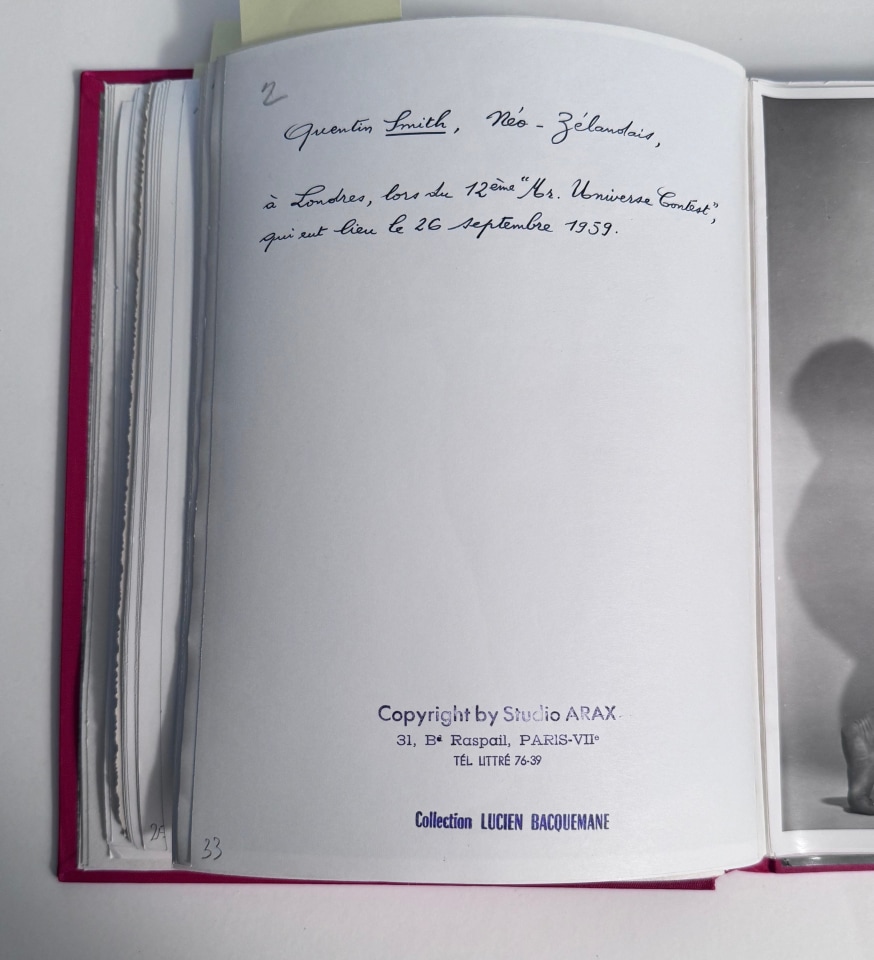 2
Quentin Smith, Néo-Zélandais,
à Londres, lors du 12ème "Mr. Universe Contest",
qui eut lieu le 26 septembre 1959.
Copyright by Studio ARAX
31, Bd Raspail, PARIS-VIIe
TÉL. LITTRÉ 76-39
Collection LUCIEN BACQUEMANE
33